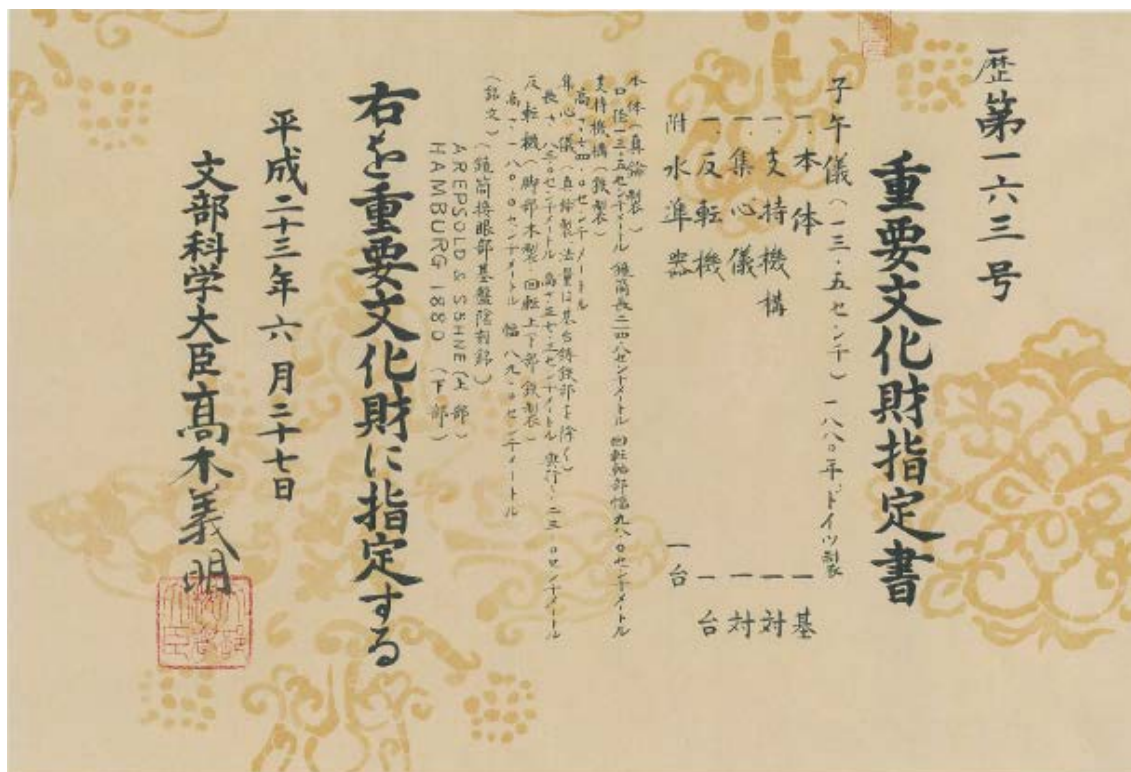 歴第一六三号
重要文化財指定書
子午儀（一三・五センチ）一八八〇年、ドイツ製
一、本体 一基
一、支持機構 一対
一、集心儀 一対
一、反転機 一台
附水準器 一台
本体（真鍮製）
口径一三・五センチメートル 鏡筒長二四八センチメートル 回転軸部幅九八・〇センチメートル
支持機構（鉄製）
高さ 六四・〇センチメートル
集心儀（真鍮製、法量は基台鋳鉄部を除く）
長さ 八三・〇センチメートル 高さ 五七・三センチメートル 奥行 二三・〇センチメートル
反転機（脚部木製、回転上下部鉄製）
高さ 一八〇・〇センチメートル 幅 八九・〇センチメートル
（銘文）（鏡筒接眼部基盤陰刻銘）
AREPSOLD & SÖHNE（上部）
HAMBURG 1880（下部）
右を重要文化財に指定する
平成二十三年六月二十七日
文部科学大臣髙木義明